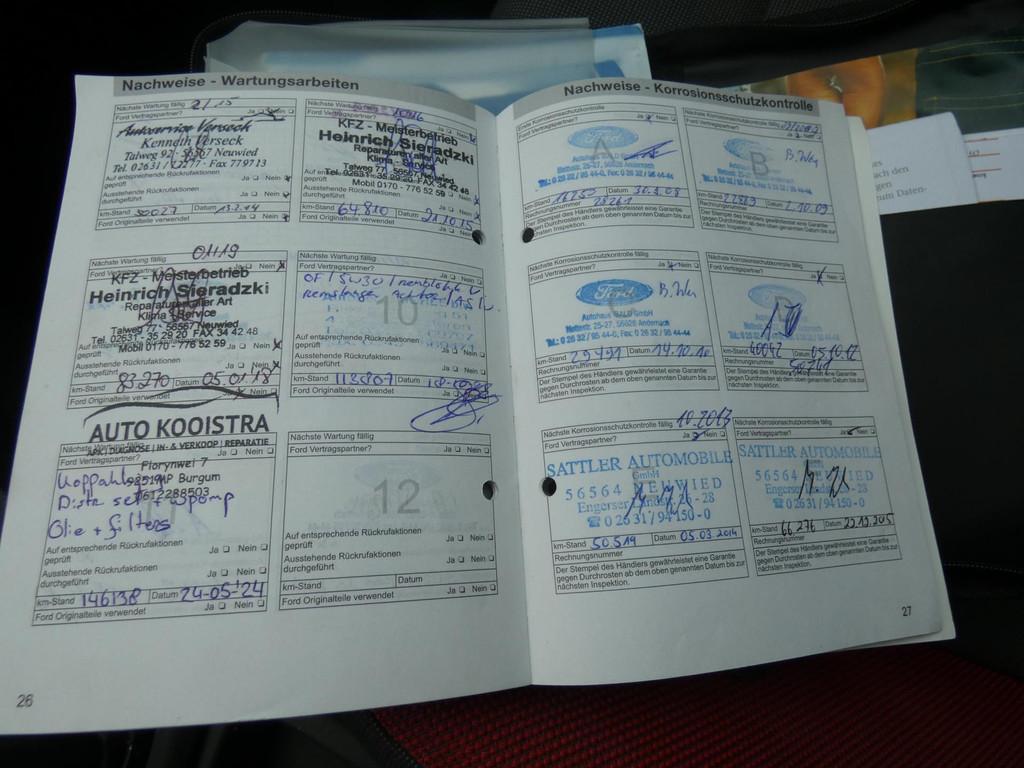 Nachweise - Wartungsarbeiten
Nächste Wartung fällig 2/15
Ford Vertragspartner? Ja Nein
Autoservice Verseck
Kenneth Verseck
Talweg 92 · 56567 Neuwied
Tel. 02631/ Fax 779713
Auf entsprechende Rückrufaktionen
geprüft Ja Nein
Ausstehende Rückrufaktionen
durchgeführt Ja Nein
km-Stand 50027 Datum 13.2.14
Ford Originalteile verwendet Ja Nein
Nächste Wartung fällig
Ford Vertragspartner? Ja Nein
KFZ - Meisterbetrieb
Heinrich Sieradzki
Reparaturen aller Art
Klima - Service
Talweg 77 - 56567 Neuwied
Tel. 02631 - 35 29 20 FAX 34 42 48
Mobil 0170 - 776 52 59
Ausstehende Rückrufaktionen
durchgeführt
km-Stand 64810 Datum 21.10.15
Ford Originalteile verwendet Ja Nein
01/19
Ford Vertragspartner? Ja Nein
KFZ - Meisterbetrieb
Heinrich Sieradzki
Reparaturen aller Art
Klima - Service
Talweg 77 - 56567 Neuwied
Tel. 02631 - 35 29 20 FAX 34 42 48
Mobil 0170 - 776 52 59
geprüft
Ausstehende Rückrufaktionen
durchgeführt Ja Nein
km-Stand 83270 Datum 05.01.18
Ford Originalteile verwendet Ja Nein
Nächste Wartung fällig
Ford Vertragspartner? Ja Nein
10
geprüft
Ausstehende Rückrufaktionen
durchgeführt Ja Nein
km-Stand 112807 Datum
Ford Originalteile verwendet Ja Nein
AUTO KOOISTRA
APK | DIAGNOSE | IN- & VERKOOP | REPARATIE
Nächste Wartung fällig
Ford Vertragspartner? Ja Nein
Florynwei 7
9251MP Burgum
0612288503
Distr set + wpomp
Olie + filters
Auf entsprechende Rückrufaktionen
geprüft Ja Nein
Ausstehende Rückrufaktionen
durchgeführt Ja Nein
km-Stand 146138 Datum 24-05-'24
Ford Originalteile verwendet Ja Nein
Nächste Wartung fällig
Ford Vertragspartner? Ja Nein
12
Auf entsprechende Rückrufaktionen
geprüft Ja Nein
Ausstehende Rückrufaktionen
durchgeführt Ja Nein
km-Stand Datum
Ford Originalteile verwendet Ja Nein
26
Nachweise - Korrosionsschutzkontrolle
Erste Korrosionsschutzkontrolle
Ford Vertragspartner? Ja Nein
Ford
A
km-Stand Datum
Rechnungsnummer 28261
Der Stempel des Händlers gewährleistet eine Garantie
gegen Durchrosten ab dem oben genannten Datum bis zur
nächsten Inspektion.
Nächste Korrosionsschutzkontrolle fällig
Ford Vertragspartner? Ja Nein
Ford
B
km-Stand Datum 2.10.09
Rechnungsnummer
Der Stempel des Händlers gewährleistet eine Garantie
gegen Durchrosten ab dem oben genannten Datum bis zur
nächsten Inspektion.
Nächste Korrosionsschutzkontrolle fällig
Ford Vertragspartner? Ja Nein
Ford
Autohaus GmbH
25-27, 56626 Andernach
Tel.: 0 26 32 / 95 44-0, Fax 0 26 32 / 95 44-44
km-Stand 29491 Datum 14.10.10
Rechnungsnummer
Der Stempel des Händlers gewährleistet eine Garantie
gegen Durchrosten ab dem oben genannten Datum bis zur
nächsten Inspektion.
Nächste Korrosionsschutzkontrolle fällig
Ford Vertragspartner?
Ford
km-Stand 40042 Datum 05.10.12
Rechnungsnummer
Der Stempel des Händlers gewährleistet eine Garantie
gegen Durchrosten ab dem oben genannten Datum bis zur
nächsten Inspektion.
Nächste Korrosionsschutzkontrolle fällig 10.2013
Ford Vertragspartner? Ja Nein
SATTLER AUTOMOBILE
GmbH
56564 NEUWIED
Engerser Landstr. 26 - 28
☎ 0 26 31 / 94 150 - 0
km-Stand 50.519 Datum 05.03.2014
Rechnungsnummer
Der Stempel des Händlers gewährleistet eine Garantie
gegen Durchrosten ab dem oben genannten Datum bis zur
nächsten Inspektion.
Nächste Korrosionsschutzkontrolle fällig
Ford Vertragspartner? Ja Nein
SATTLER AUTOMOBILE
56564 NEUWIED
Engerser Landstr. 26 - 28
☎ 0 26 31 / 94 150 - 0
km-Stand 66.276 Datum 22.12.2015
Rechnungsnummer
Der Stempel des Händlers gewährleistet eine Garantie
gegen Durchrosten ab dem oben genannten Datum bis zur
nächsten Inspektion.
27
ach den
gen
zum Daten-